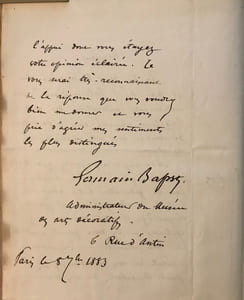 l'appui dont vous étayez
votre opinion éclairée. Je
vous serai très reconnaissant
de la réponse que vous voudrez
bien me donner et vous
prie d'agréer mes sentiments
les plus distingués
Germain Bapst
Administrateur du Musée
des arts décoratifs
6 Rue d'Antin
Paris le 8 7bre 1883